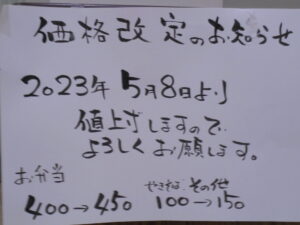 価格改定のお知らせ
2023年 5月8日より
値上げしますので
よろしくお願します。
お弁当
400→450
やきそば、その他
100→150